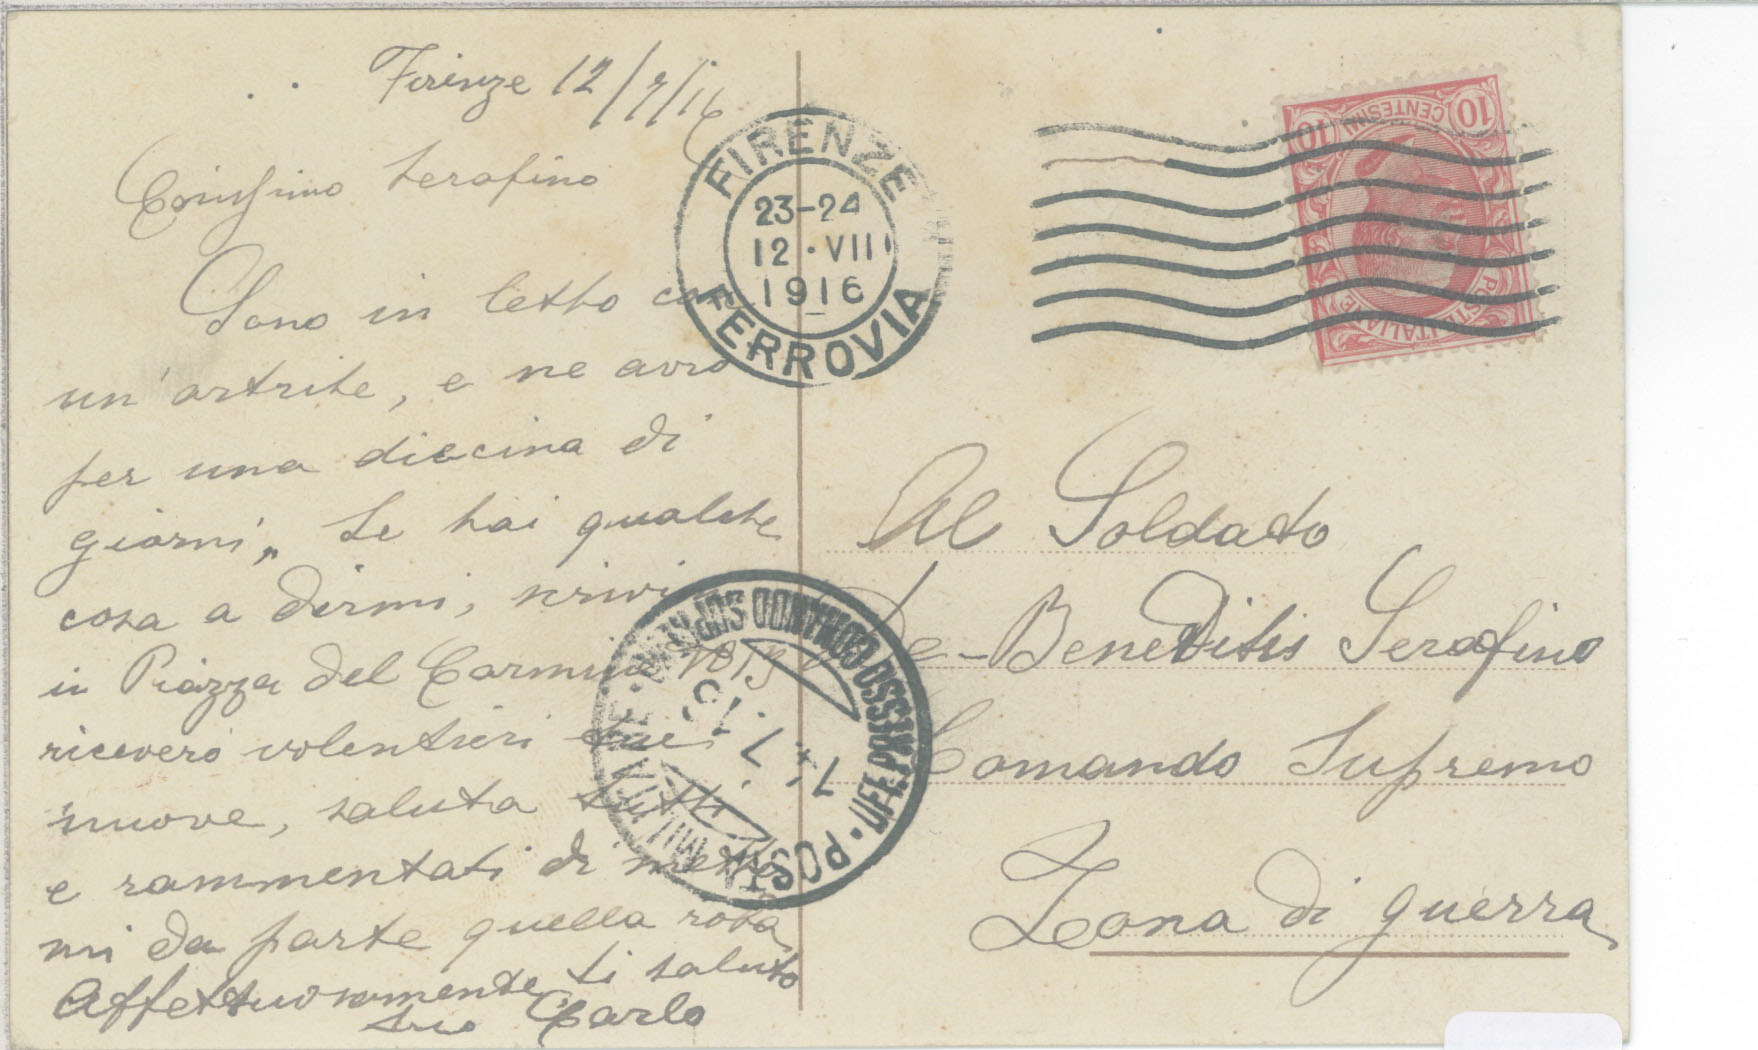 Firenze 12/7/16
Carissimo Serafino
Sono in letto con
un'artrite, e ne avrò
per una diecina di
giorni, Se hai qualche
cosa a dirmi, scrivi
in Piazza del Carmine
riceverò volentieri tue
nuove, saluta tutti
e rammentati di metter
mi da parte quella roba
Affettuosamente ti saluto
tuo Carlo
FIRENZE
23-24
12·VII
1916
FERROVIA
10 10
CENTESIMI
POSTE ITALIANE
Al Soldato
De-Beneditis Serafino
Comando Supremo
Zona di guerra
POSTA MILITARE · COMANDO SUPREMO
14.7.16